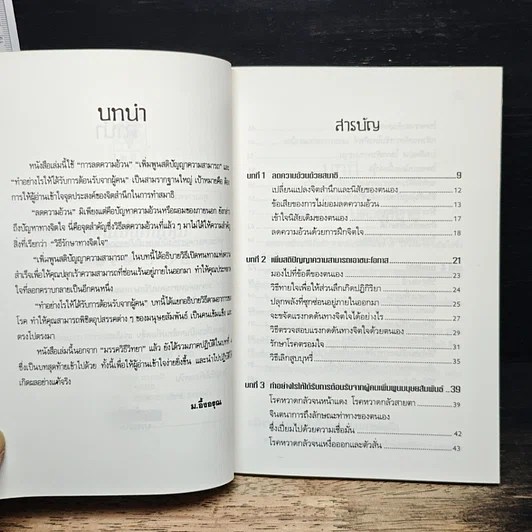 บทนำ
หนังสือเล่มนี้ใช้ "การลดความอ้วน" "เพิ่มพูนสติปัญญาความสามารถ" และ
"ทำอย่างไรให้ได้รับการต้อนรับจากผู้คน" เป็นสามรากฐานใหญ่ เป้าหมายคือ ต้อง
การให้ผู้อ่านเข้าใจจุดประสงค์ของจิตสำนึกในการทำสมาธิ
"ลดความอ้วน" มิเพียงแต่คือปัญหาความอ้วนหรือผอมของกายนอก ยังกล่าว
ถึงปัญหาทางจิตใจ นี่คือจุดสำคัญซึ่งวิธีลดความอ้วนที่แล้ว ๆ มาไม่ได้ให้ความสำคัญ
สิ่งที่เรียกว่า "วิธีรักษาทางจิตใจ"
"เพิ่มพูนสติปัญญาความสามารถ" ในบทนี้ได้อธิบายวิธีเปิดหนทางแห่งความ
สำเร็จเพื่อให้คุณปลุกเร้าความสามารถที่ซ่อนเร้นอยู่ภายในออกมา ทำให้คุณประสบ
ใจที่ลอกคราบกลายเป็นอีกคนหนึ่ง
"ทำอย่างไรให้ได้รับการต้อนรับจากผู้คน" บทนี้ได้แยกอธิบายวิธีตามอาการของ
โรค ทำให้คุณสามารถพิชิตอุปสรรคต่าง ๆ ของมนุษยสัมพันธ์ เป็นคนเข้มแข็ง และ
ตรงไปตรงมา
หนังสือเล่มนี้นอกจาก "มรรควิธีวิทยา" แล้ว ยังได้รวมภาคปฏิบัติในบทที่
ซึ่งเป็นบทสุดท้ายเข้าไปด้วย ทั้งนี้เพื่อให้ผู้อ่านเข้าใจง่ายยิ่งขึ้น และนำไปปฏิบัติ
เกิดผลอย่างแท้จริง
ม.อึ้งอรุณ
สารบัญ
บทที่ 1 ลดความอ้วนด้วยสมาธิ 9
เปลี่ยนแปลงจิตสำนึกและนิสัยของตนเอง 12
ข้อเสียของการไม่ยอมลดความอ้วน 13
เข้าใจนิสัยเดิมของตนเอง 17
ลดความอ้วนด้วยการฝึกจิตใจ 18
บทที่ 2 เพิ่มสติปัญญาความสามารถเอาชนะโอกาส 21
มองไปที่ข้อดีของตนเอง
วิธีหายใจเพื่อให้ส่วนลึกเกิดปฏิกิริยา
ปลุกพลังที่ซุกซ่อนอยู่ภายในออกมา
จะขจัดแรงกดดันทางจิตใจได้อย่างไร
วิธีตรวจสอบแรงกดดันทางจิตใจด้วยตนเอง
รักษาโรคตรอมใจ
วิธีเลิกสูบบุหรี่
บทที่ 3 ทำอย่างไรให้ได้รับการต้อนรับจากผู้คนเพิ่มพูนมนุษยสัมพันธ์ 39
โรคหวาดกลัวจนหน้าแดง โรคหวาดกลัวสายตา 39
จินตนาการถึงลักษณะท่าทางของตนเอง
ซึ่งเปี่ยมไปด้วยความเชื่อมั่น 42
โรคหวาดกลัวจนเหงื่อออกและตัวสั่น 43